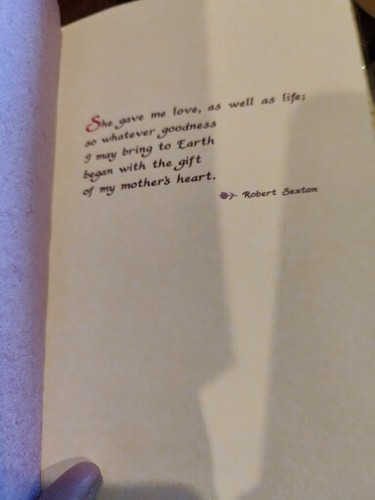 She gave me love, as well as life;
so whatever goodness
I may bring to Earth
began with the gift
of my mother's heart.
Robert Sexton